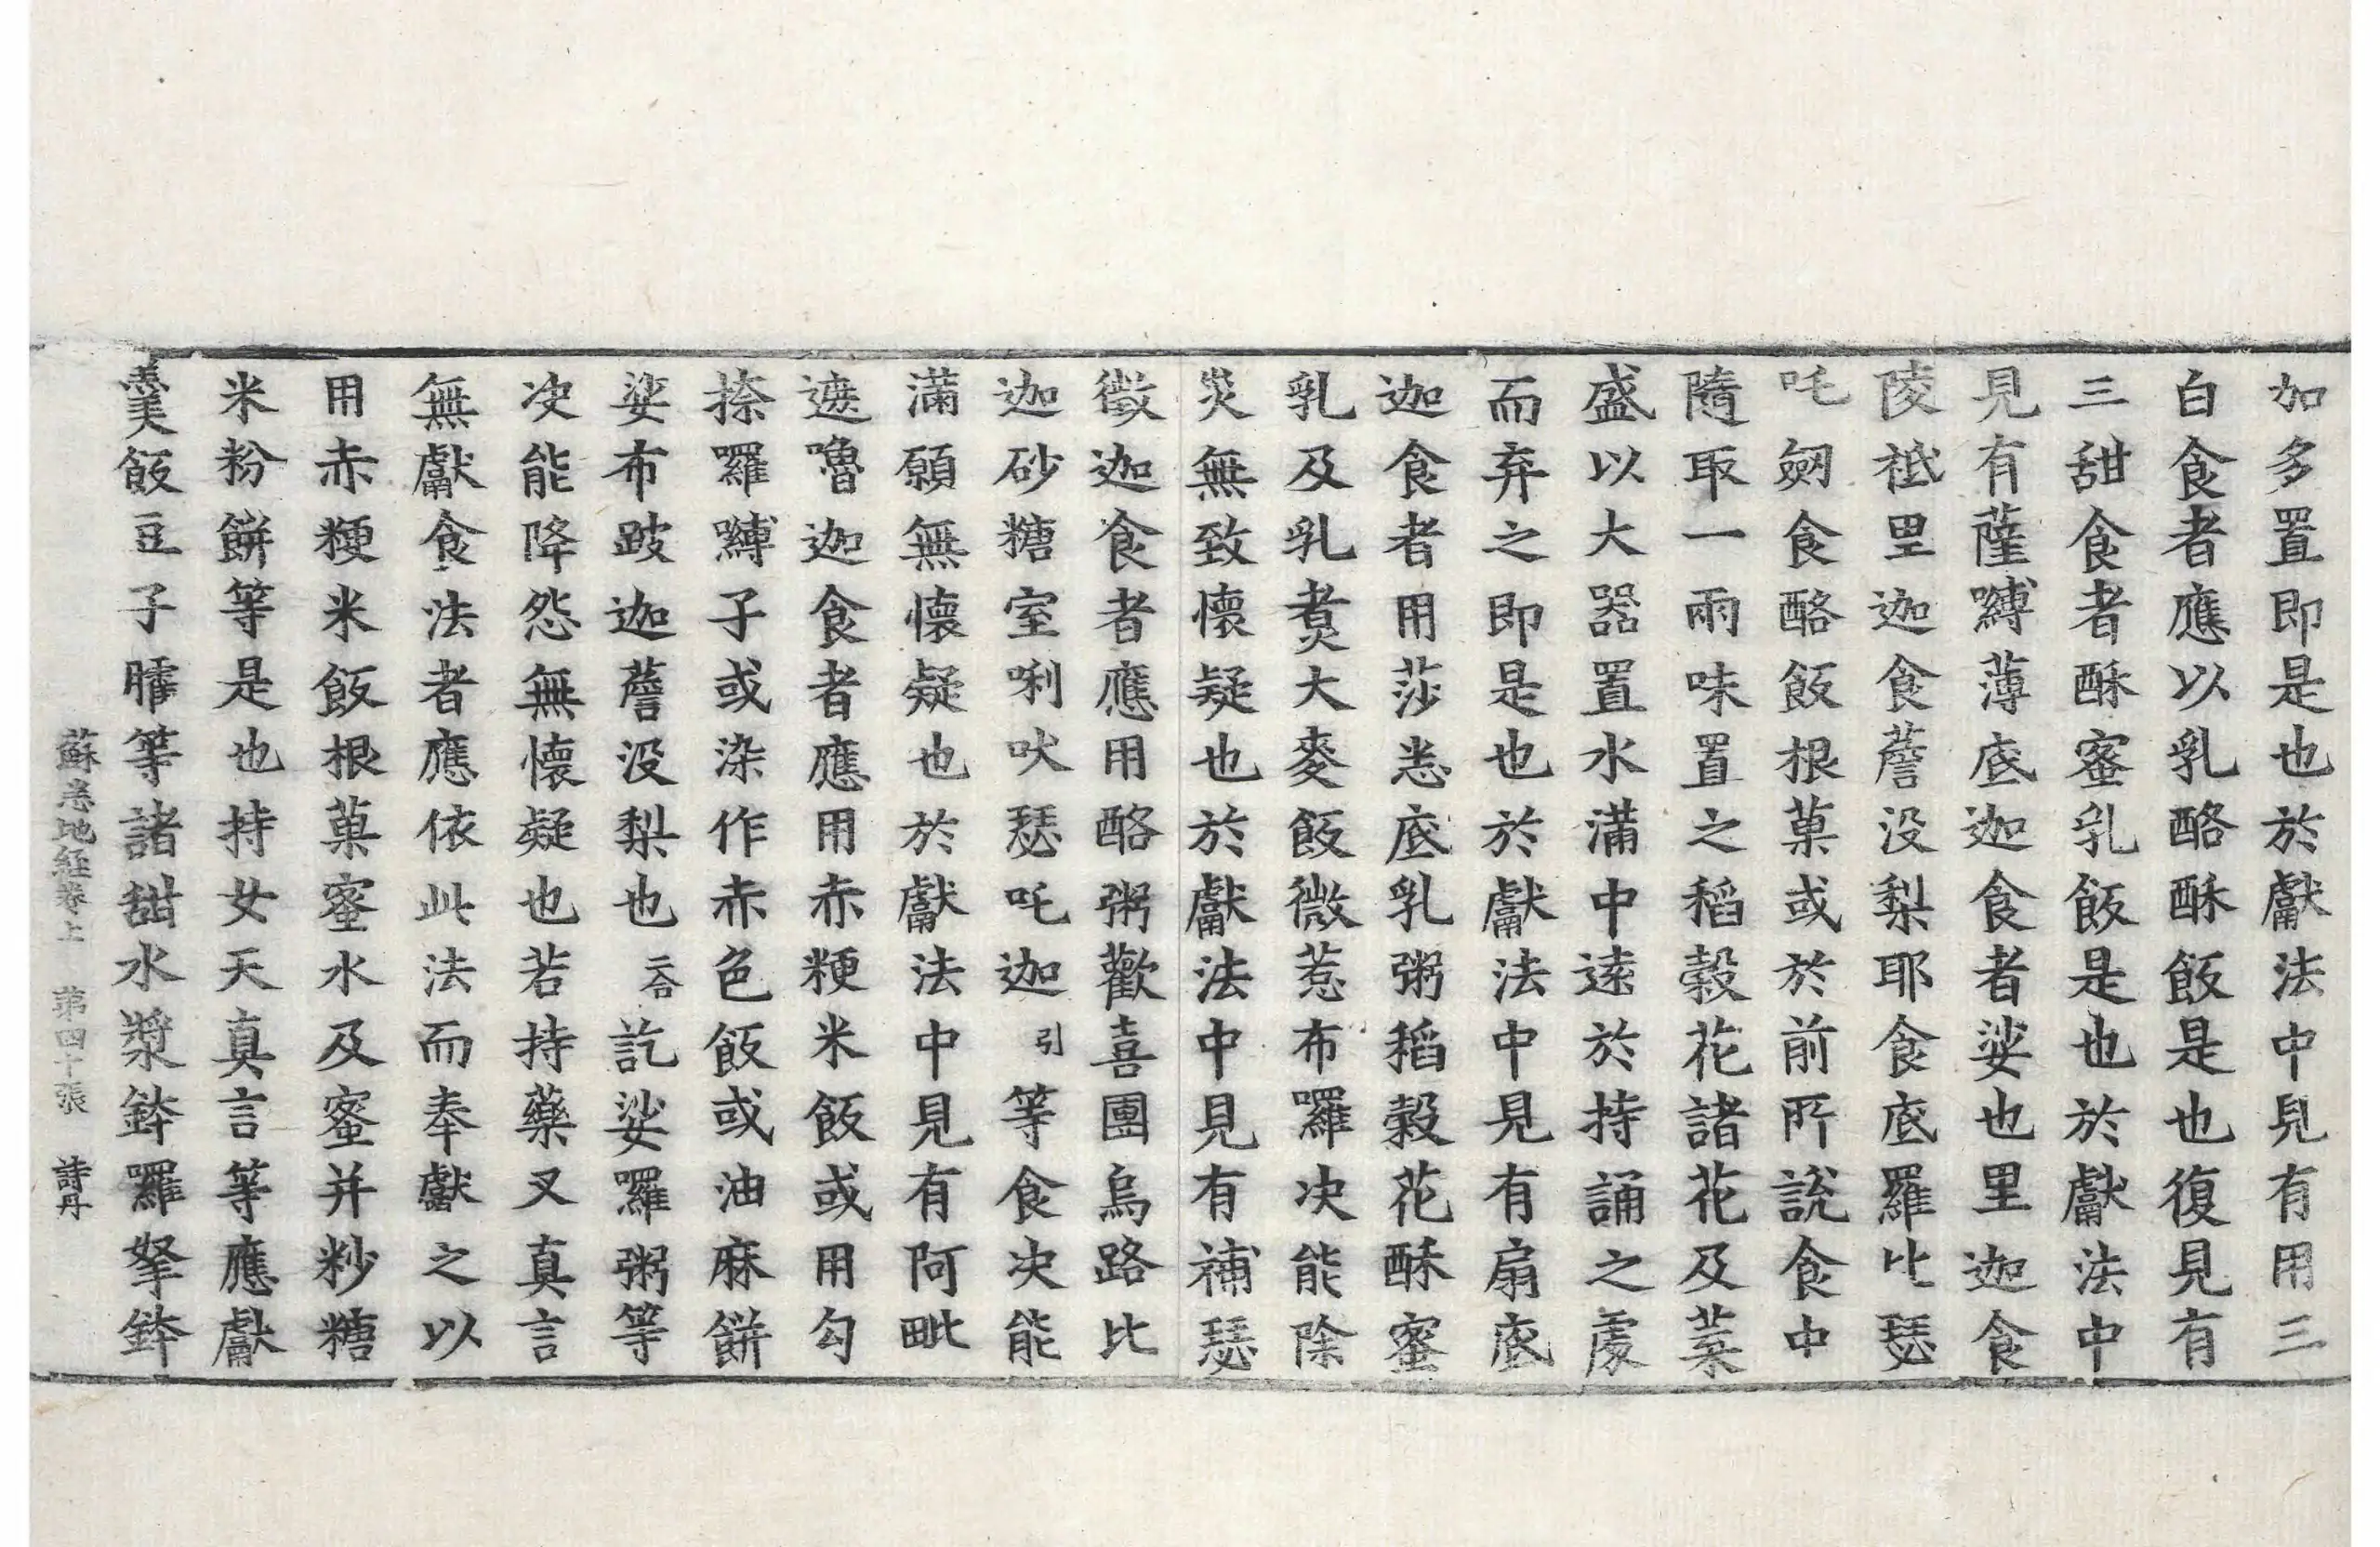 加多置即是也於獻法中見有用三
白食者應以乳酪酥飯是也復見有
三甜食者酥蜜乳飯是也於獻法中
見有薩嚩薄底迦食者娑也里迦食
陵祇里迦食䕾没梨耶食底羅比瑟
吒劒食酪飯根菓或於前所說食中
隨取一兩味置之稻糓花諸花及葉
盛以大器置水滿中遠於持誦之處
而弃之即是也於獻法中見有扇底
迦食者用莎悉底乳粥稻糓花酥蜜
乳及乳煮大麥飯微惹布羅决能除
災無致懷疑也於獻法中見有補瑟
徵迦食者應用酪粥歡喜團烏路比
迦砂糖室唎吠瑟吒迦引等食决能
滿願無懷疑也於獻法中見有阿毗
遮嚕迦食者應用赤粳米飯或用勾
捺囉嚩子或染作赤色飯或油麻餅
娑布跛迦䕾没梨也二合訖娑囉粥等
决能降怨無懷疑也若持藥叉真言
無獻食法者應依此法而奉獻之以
用赤粳米飯根菓蜜水及蜜并粆糖
米粉餅等是也持女天真言等應獻
羹飯豆子臛等諸甜水漿鉢囉拏鉢
蘇悉地經卷上 第四十張 詩丹